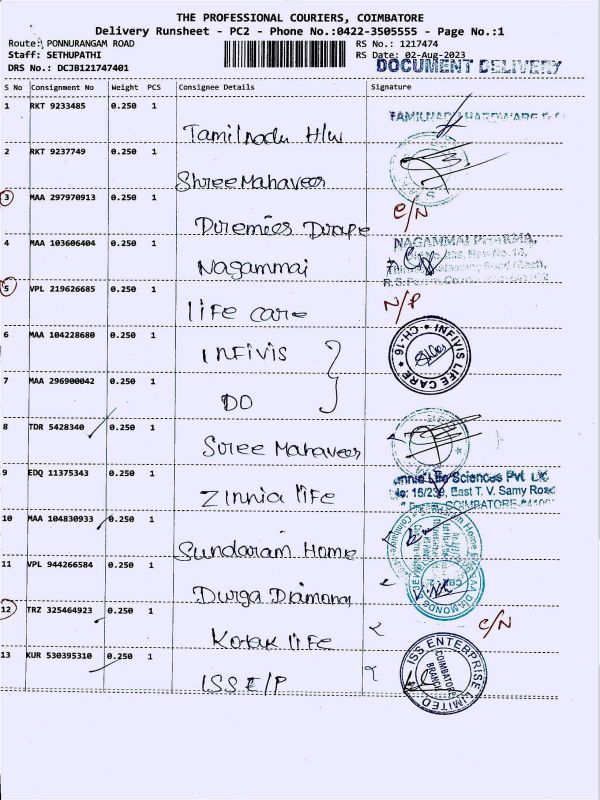 THE PROFESSIONAL COURIERS, COIMBATORE
Delivery Runsheet - PC2 - Phone No.:0422-3505555 - Page No.:1
Route: PONNURANGAM ROAD RS No.: 1217474
Staff: SETHUPATHI RS Date: 02-Aug-2023
DRS No.: DCJB121747401 DOCUMENT DELIVERY
S No Consignment No Weight PCS Consignee Details Signature
1 RKT 9233485 0.250 1
Tamilnadu H/w
2 RKT 9237749 0.250 1
Shree Mahaveer
3 MAA 297970913 0.250 1 C/N
4 MAA 103606404 0.250 1 NAGAMMAI PHARMA,
Nagammai
5 VPL 219626685 0.250 1 N/P
life care
6 MAA 104228680 0.250 1 INFIVIS LIFE CARE CH-16
INFIVIS
7 MAA 296900042 0.250 1
DO
8 TDR 5428340 0.250 1
Sree Mahaveer
9 EDQ 11375343 0.250 1 Life Sciences Pvt
Zinnia life East T. V. Samy Road
COIMBATORE
10 MAA 104830933 0.250 1
Sundaram Home
11 VPL 944266584 0.250 1
Durga Diamond
12 TRZ 325464923 0.250 1 C/N
Kotak life
13 KUR 530395310 0.250 1 ISS ENTERPRISE LIMITED
COIMBATORE BRANCH
ISS E/P